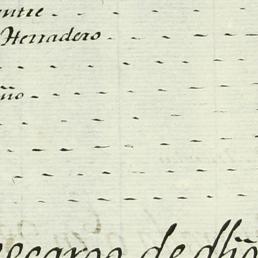 entre
Herradero
ño
escargo de dho